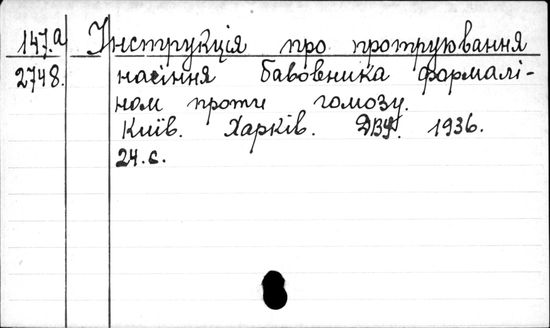 147.а Інструкція про протруювання
2748. насіння бавовника формалі-
ном проти гомозу.
Київ. Харків. 1936.
24.с.